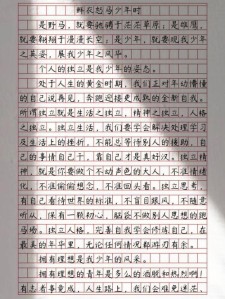 鲜衣怒马少年时
是野马，就要驰骋于茫茫草原；是雄鹰，
就要翱翔于漫漫长空；是少年，就要现我少年
之英姿，展我少年之风华。
个人的独立是我少年的姿态。
处于人生的黄金时期，我们正时年幼懵懂
的自己说再见，奔跑迎接更成熟的全新自我。
所谓独立就是生活独立，精神独立，人格
之独立。独立生活，我们要学会解决处理学习
及生活上的困难，不能总等待别人的援助，自
己的事情自己干，靠自己才是真好汉。独立精
神，就是你要做个不动声色的大人，不准情绪
化，不准偷偷想念，不准回头看。独立思考，
有自己看待世界的标准，不盲目跟风，不随意
听从，保有一颗初心，脑袋不做别人思想的跑
马场。独立人格，完善自我学会约束自己，在
最美的年华里，无论任何情况都难为有余。
拥有理想是我少年的风采。
拥有理想的青年是多么的洒脱和热烈啊！
有志者事竟成，人生路上，我们会难免迷茫，